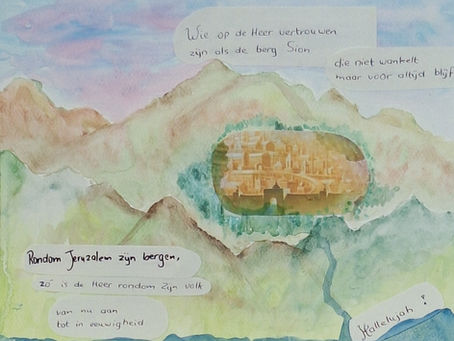 Wie op de Heer vertrouwen
zijn als de berg Sion
die niet wankelt
maar voor altijd blijf
Rondom Jeruzalem zijn bergen,
zó is de Heer rondom Zijn volk
van nu aan
tot in eeuwigheid
Hallelujah!